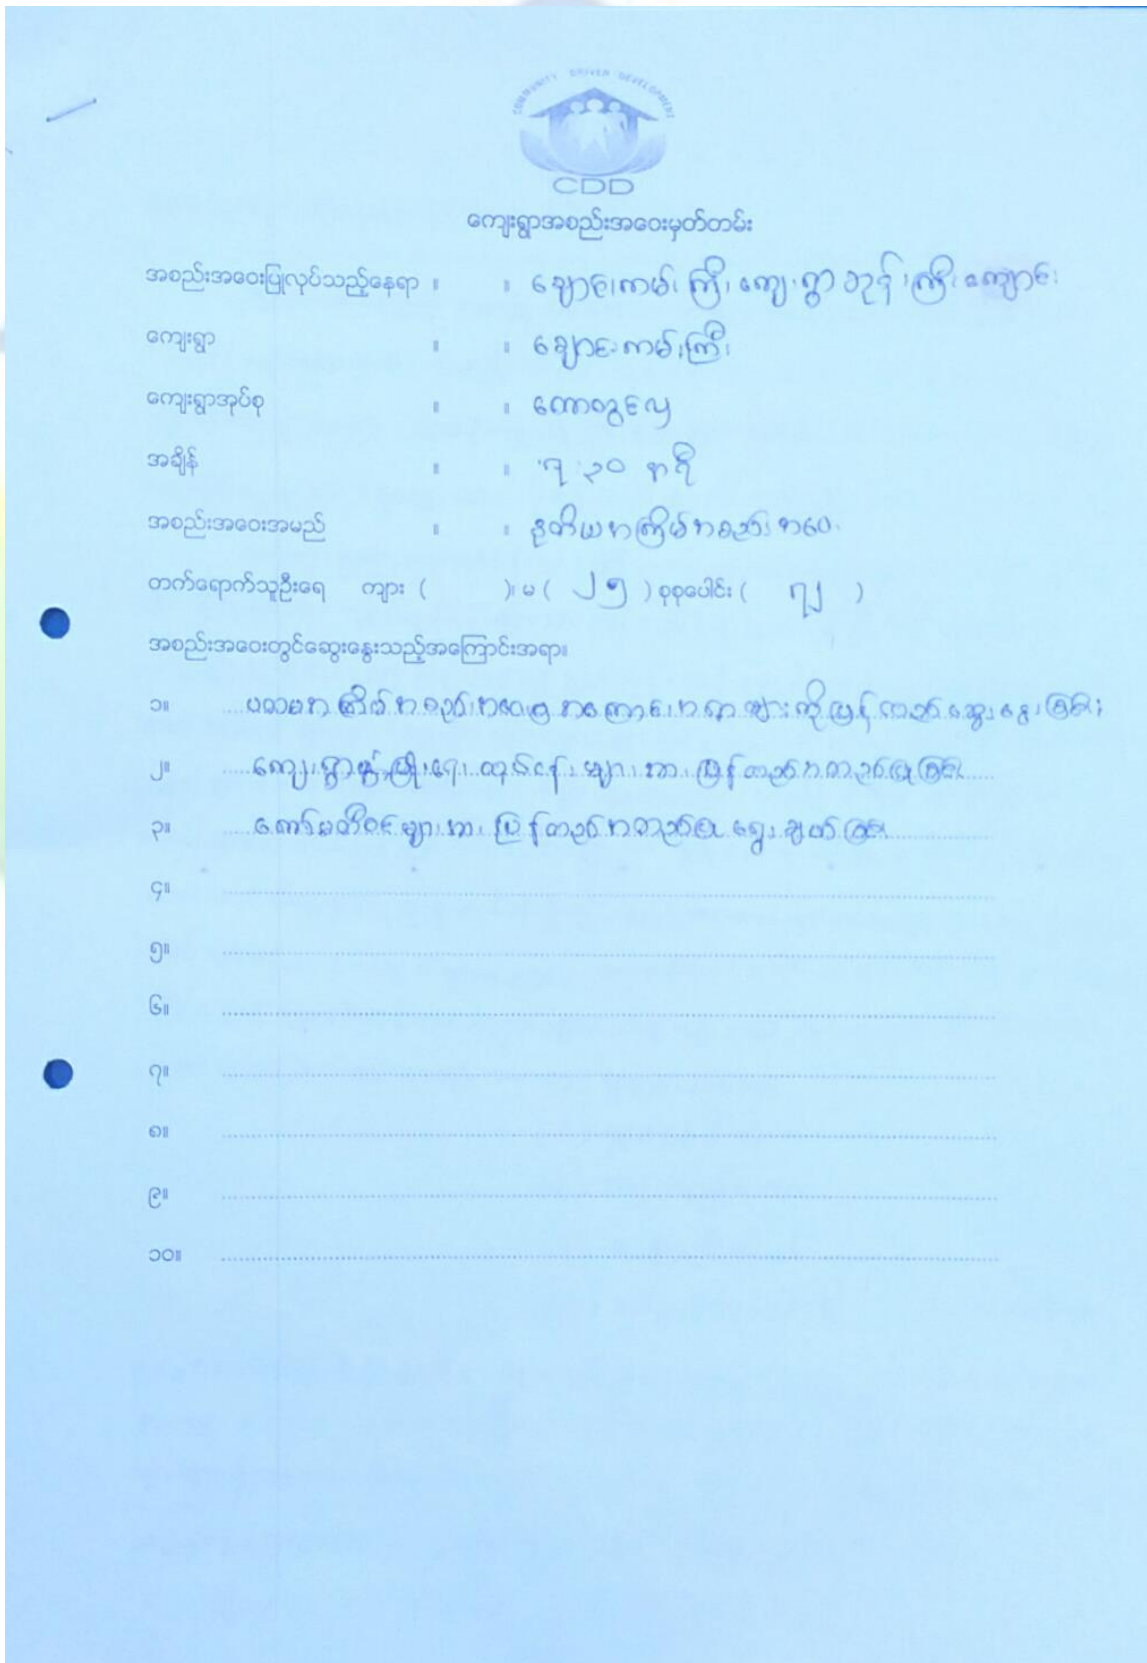 COMMUNITY DRIVEN DEVELOPMENT
CDD
ကျေးရွာအစည်းအဝေးမှတ်တမ်း
အစည်းအဝေးပြုလုပ်သည့်နေရာ ။ ။ ချောင်းကမ်းကြီးကျေးရွာ ဘုန်းကြီးကျောင်း
ကျေးရွာ ။ ။ ချောင်းကမ်းကြီး
ကျေးရွာအုပ်စု ။ ။
အချိန် ။ ။ ၇:၃၀ နာရီ
အစည်းအဝေးအမည် ။ ။ ဒုတိယအကြိမ်အစည်းအဝေး
တက်ရောက်သူဦးရေ ကျား ( )။ မ ( ၂၅ ) စုစုပေါင်း ( ၇၂ )
အစည်းအဝေးတွင်ဆွေးနွေးသည့်အကြောင်းအရာ။
၁။ ပထမအကြိမ်အစည်းအဝေးမှ အကြောင်းအရာများကိုပြန်လည်ဆွေးနွေးခြင်း
၂။ ကျေးရွာဖွံ့ဖြိုးရေးလုပ်ငန်းများအားပြန်လည်အတည်ပြုခြင်း
၃။ ကော်မတီဝင်များအားပြန်လည်အတည်ပြုရွေးချယ်ခြင်း
၄။
၅။
၆။
၇။
၈။
၉။
၁၀။